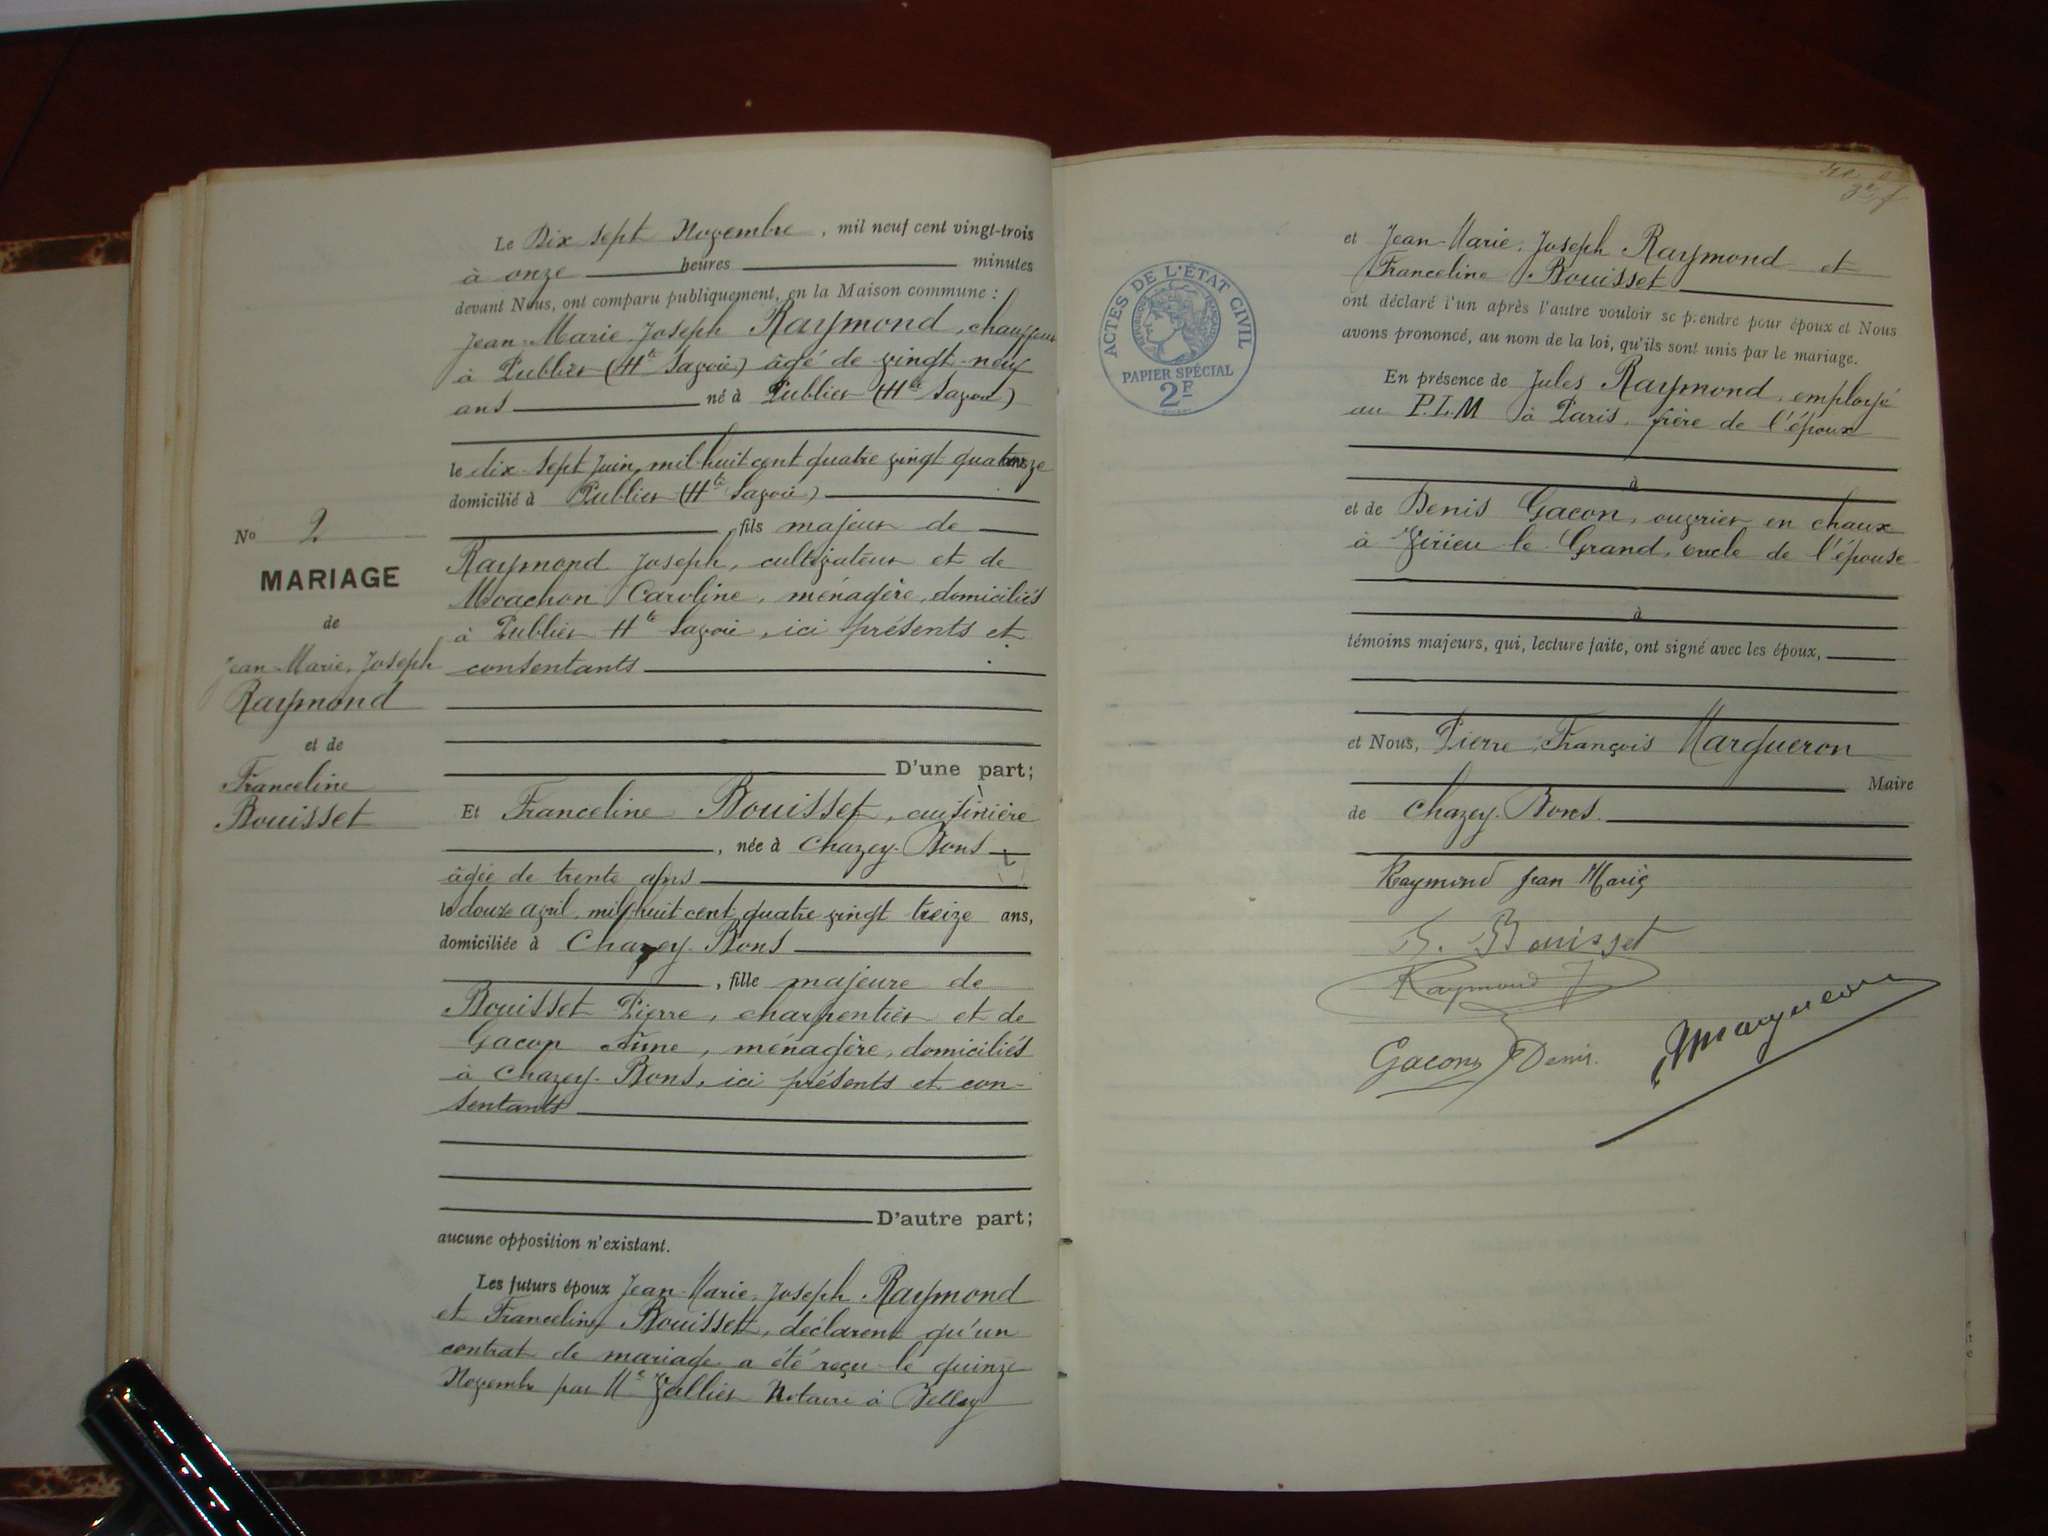 Le Dix sept Novembre, mil neuf cent vingt-trois
à onze heures minutes
devant Nous, ont comparu publiquement, en la Maison commune :
Jean-Marie, Joseph Raymond, chauffeur
à Publier (Hte Savoie) âgé de vingt-neuf
ans né à Publier (Hte Savoie)
le dix-sept Juin, mil huit cent quatre vingt quatorze
domicilié à Publier (Hte Savoie)
, fils majeur de
Raymond Joseph, cultivateur et de
Moachon Caroline, ménagère, domiciliés
à Publier Hte Savoie, ici présents et
consentants
D'une part;
Et Franceline Bouisset, cuisinière
, née à Chazey-Bons
âgée de trente ans
le douze avril, mil huit cent quatre vingt treize ans,
domiciliée à Chazey-Bons
, fille majeure de
Bouisset Pierre, charpentier et de
Gacon Anne, ménagère, domiciliés
à Chazey-Bons, ici présents et con-
sentants
D'autre part;
aucune opposition n'existant.
Les futurs époux Jean-Marie, Joseph Raymond
et Franceline Bouisset, déclarent qu'un
contrat de mariage a été reçu le quinze
Novembre par Me Vallier Notaire à Belley
No 2
MARIAGE
de
Jean-Marie, Joseph
Raymond
et de
Franceline
Bouisset
ACTES DE L'ÉTAT CIVIL
RÉPUBLIQUE FRANÇAISE
PAPIER SPÉCIAL
2F
et Jean-Marie, Joseph Raymond et
Franceline Bouisset
ont déclaré l'un après l'autre vouloir se prendre pour époux et Nous
avons prononcé, au nom de la loi, qu'ils sont unis par le mariage.
En présence de Jules Raymond, employé
au P.L.M à Paris, frère de l'époux
à
et de Denis Gacon, ouvrier en chaux
à Virieu-le-Grand, oncle de l'épouse
à
témoins majeurs, qui, lecture faite, ont signé avec les époux,
et Nous, Pierre, François Margueron
Maire
de Chazey-Bons
Raymond Jean Marie
F. Bouisset
Raymond J
Gacon Denis
Margueron